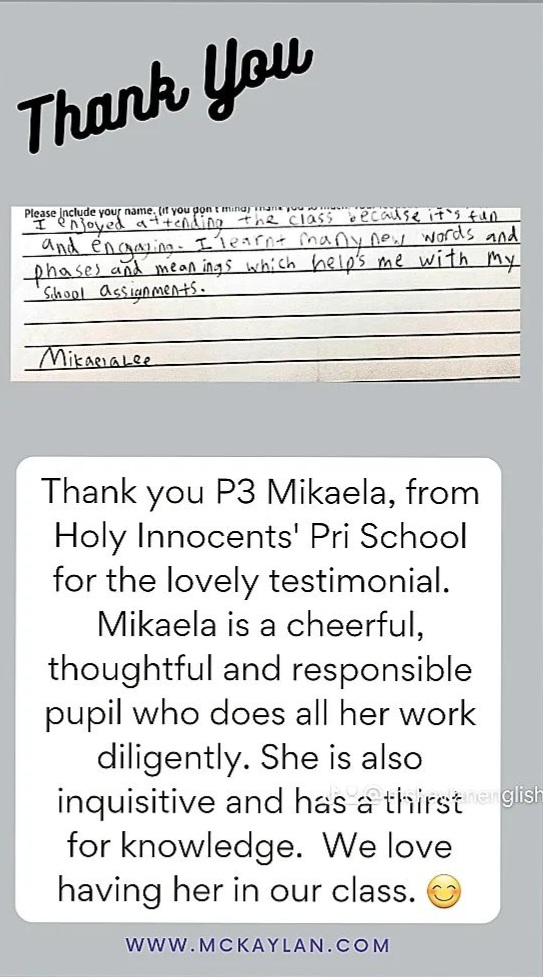 Thank You
Please include your name. (if you don't mind)
I enjoyed attending the class because it's fun
and engaging. I learnt many new words and
phases and meanings which help's me with my
School assignments.
Mikaela Lee
Thank you P3 Mikaela, from
Holy Innocents' Pri School
for the lovely testimonial.
Mikaela is a cheerful,
thoughtful and responsible
pupil who does all her work
diligently. She is also
inquisitive and has a thirst
for knowledge. We love
having her in our class. 😊
WWW.MCKAYLAN.COM